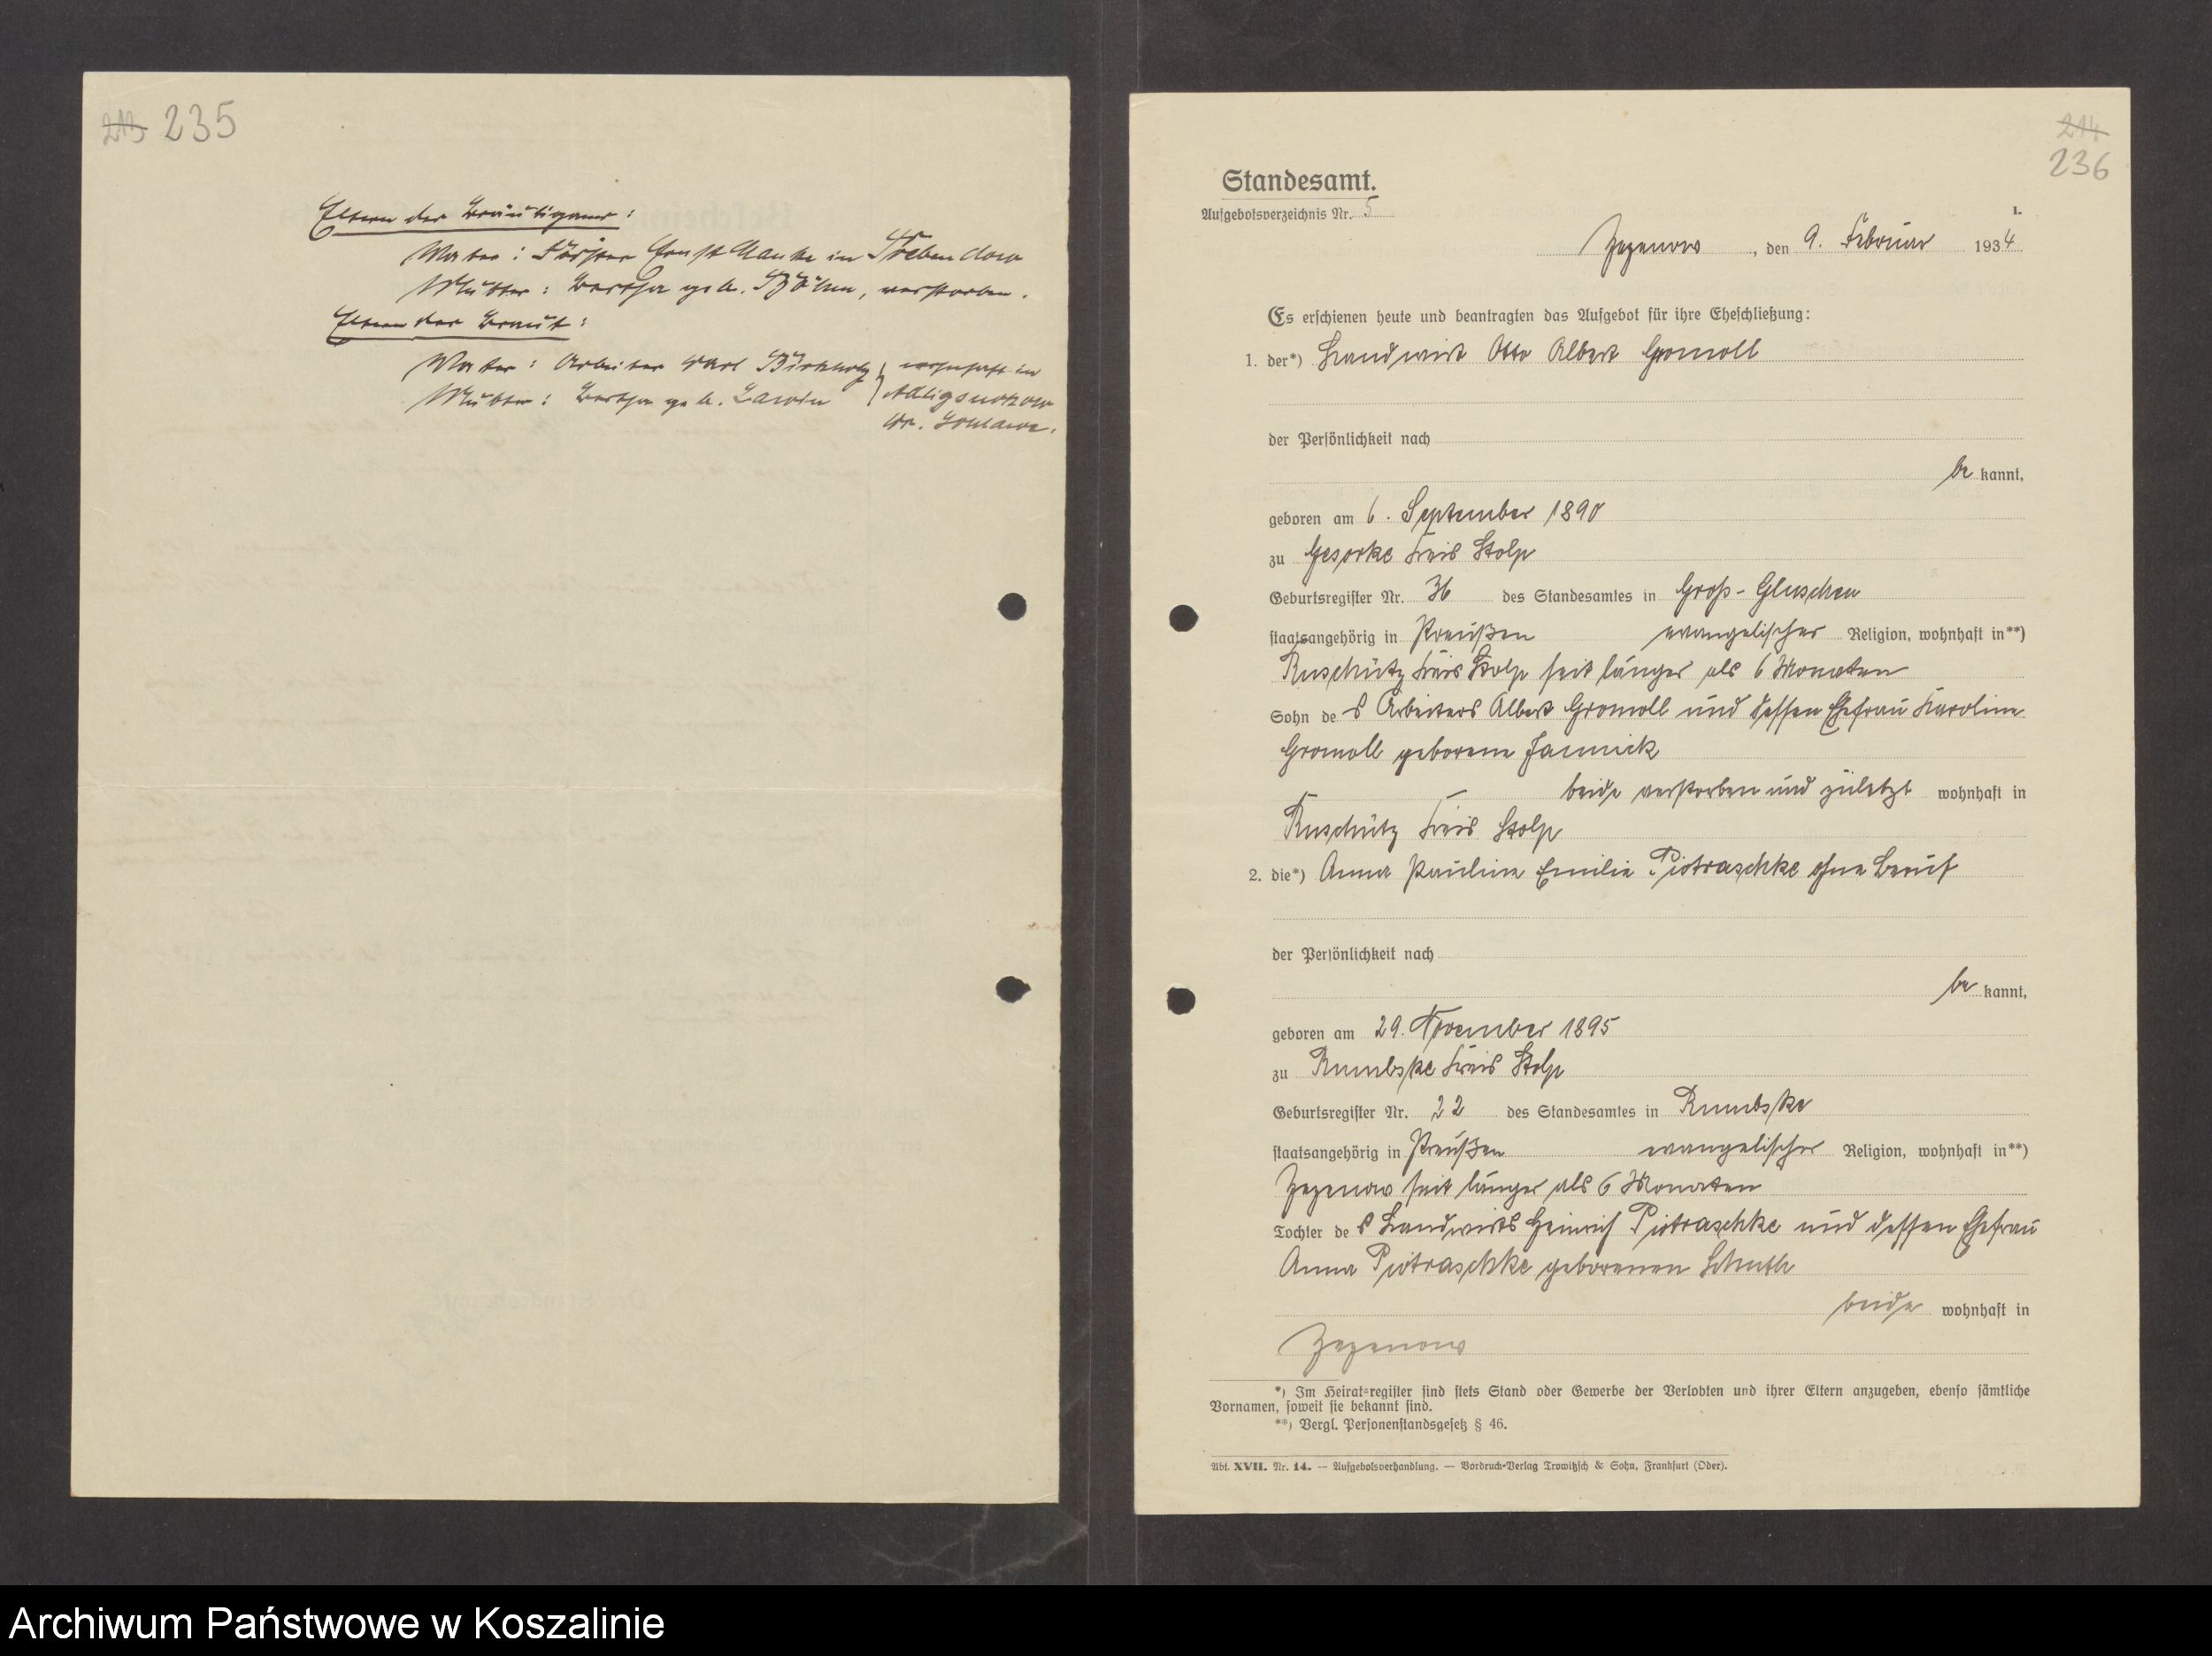 213 235
Eltern des Bräutigams:
Vater: Förster Ernst Manke in Trebendow
Mutter: Bertha geb. Böhm, verstorben.
Eltern der Braut:
Vater: Arbeiter Karl Birkholz } wohnhaft in
Mutter: Bertha geb. } Adligsuckow
Kr. Schlawe.
214
236
Standesamt.
Aufgebotsverzeichnis Nr. 5
1.
Zezenow, den 9. Februar 1934
Es erschienen heute und beantragten das Aufgebot für ihre Eheschließung:
1. der*) Landwirt Otto Albert Gromoll
der Persönlichkeit nach
be kannt,
geboren am 6. September 1890
zu Gesorke Kreis Stolp
Geburtsregister Nr. 36 des Standesamtes in Groß-Gluschen
staatsangehörig in Preußen evangelischer Religion, wohnhaft in**)
Ruschütz Kreis Stolp seit länger als 6 Monaten
Sohn de s Arbeiters Albert Gromoll und dessen Ehefrau Karoline
Gromoll geborene Jannick
beide verstorben und zuletzt wohnhaft in
Ruschütz Kreis Stolp
2. die*) Anna Pauline Emilie Piotraschke ohne Beruf
der Persönlichkeit nach
be kannt,
geboren am 29. November 1895
zu Rumbske Kreis Stolp
Geburtsregister Nr. 22 des Standesamtes in Rumbske
staatsangehörig in Preußen evangelischer Religion, wohnhaft in**)
Zezenow seit länger als 6 Monaten
Tochter de s Landwirts Heinrich Piotraschke und dessen Ehefrau
Anna Piotraschke geborenen Schuth
beide wohnhaft in
Zezenow
*) Im Heiratsregister sind stets Stand oder Gewerbe der Verlobten und ihrer Eltern anzugeben, ebenso sämtliche
Vornamen, soweit sie bekannt sind.
**) Vergl. Personenstandsgesetz § 46.
Abt. XVII. Nr. 14. — Aufgebotsverhandlung. — Vordruck-Verlag Trowitzsch & Sohn, Frankfurt (Oder).
Archiwum Państwowe w Koszalinie